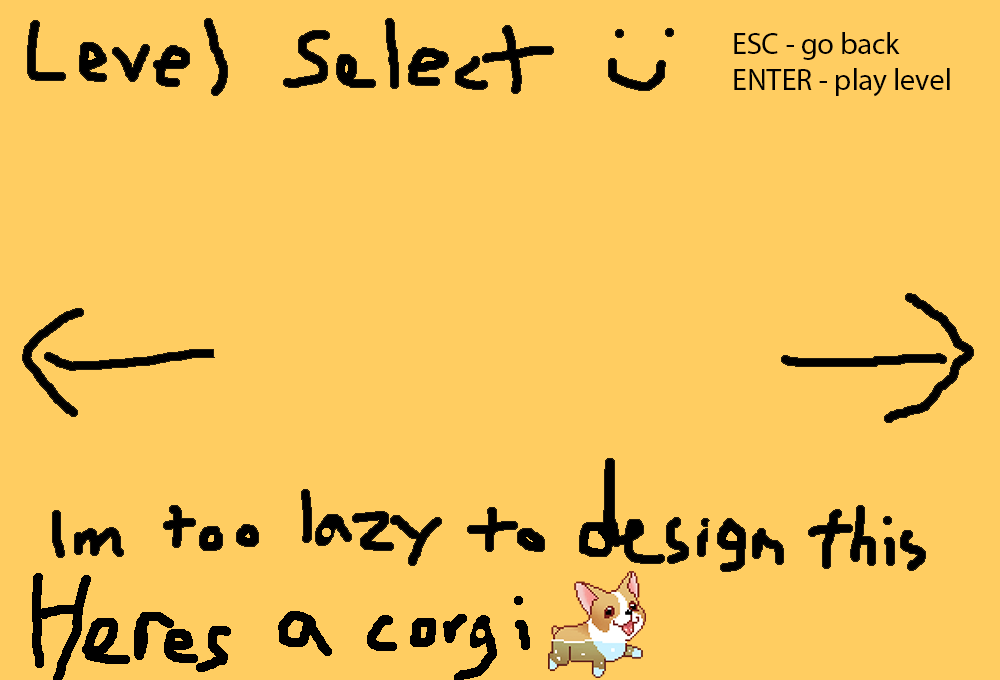 Level Select
ESC - go back
ENTER - play level
Im too lazy to design this
Heres a corgi